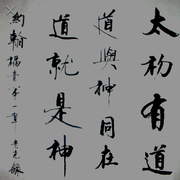 太初有道
道與神同在
道就是神
約翰福音第一章